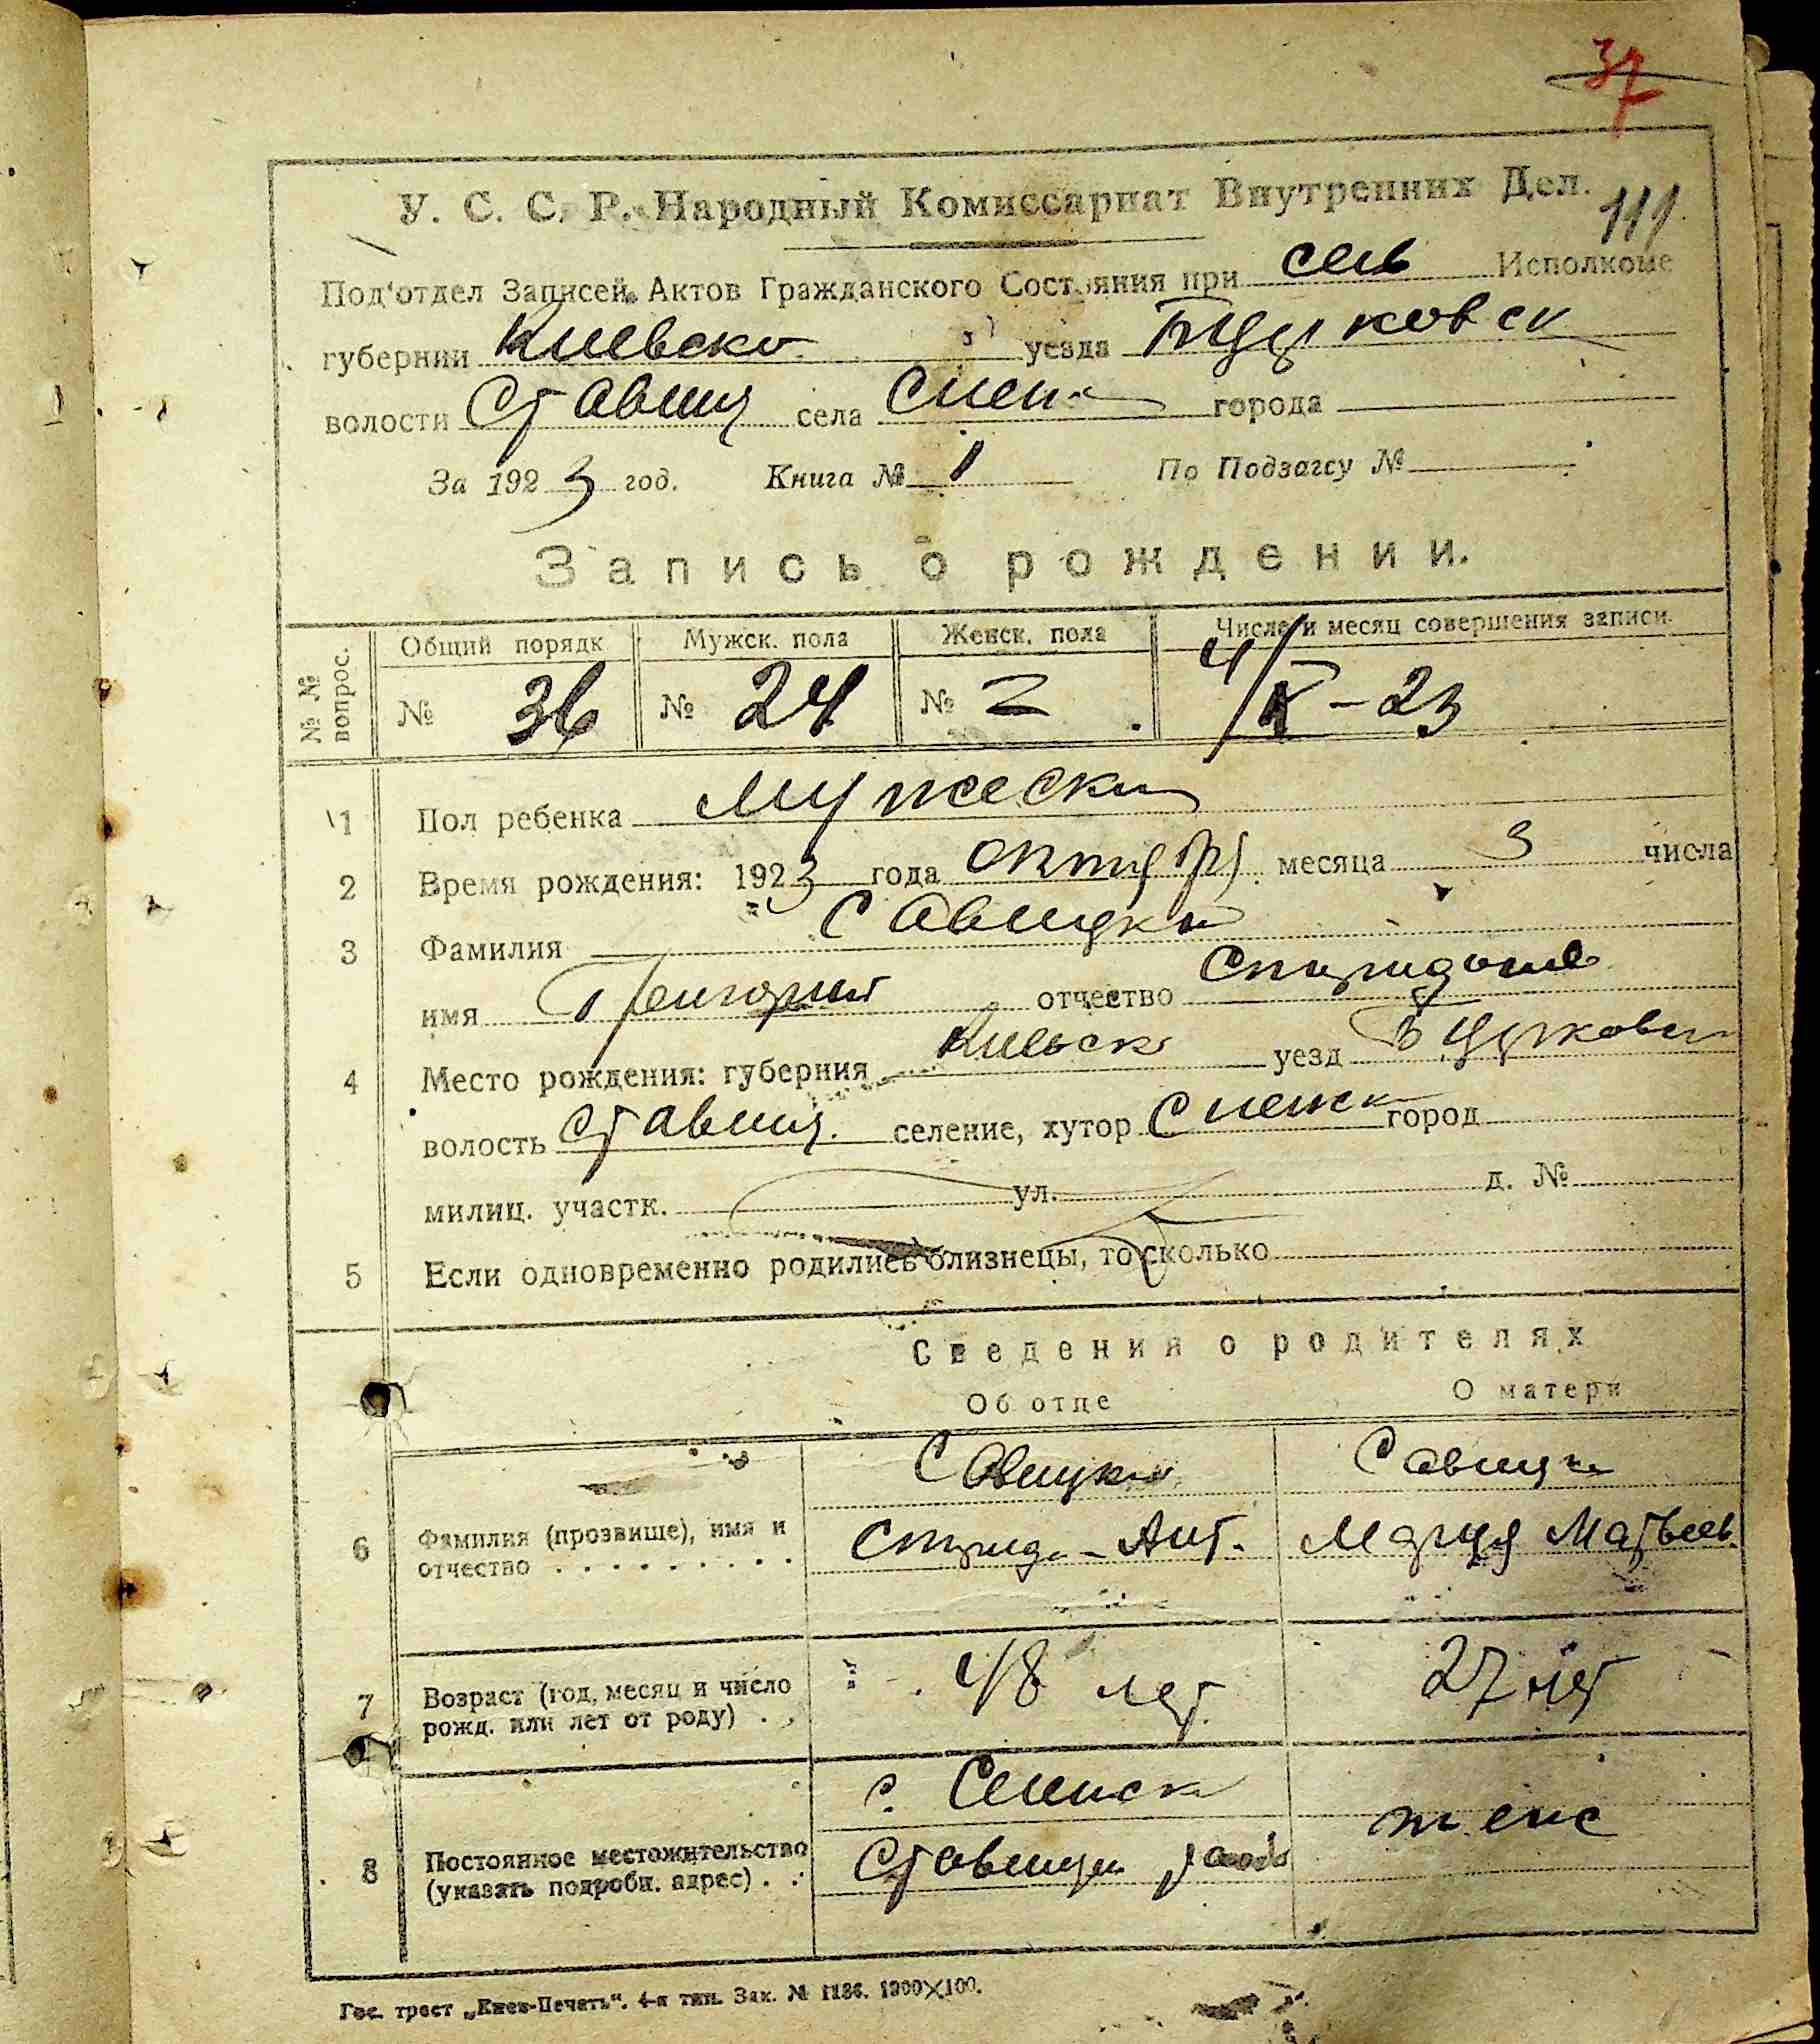 37
У. С. С. Р. Народный Комиссариат Внутренних Дел.
111
Под'отдел Записей Актов Гражданского Состояния при сель Исполкоме
губернии Киевско уезда Бцерковск
волости Ставищ села города
За 1923 год. Книга № 1 По Подзагсу №
Запись о рождении.
№ № вопрос.
Общий порядк Мужск. пола Женск. пола Число и месяц совершения записи.
№ 36 № 24 № 4/X-23
1 Пол ребенка Мужески
2 Время рождения: 1923 года октября месяца 3 числа
3 Фамилия Савицкий
имя Григорий отчество Спиридонов
4 Место рождения: губерния Киевск уезд Бцерковск
волость Ставищ. селение, хутор город
милиц. участк. ул. д. №
5 Если одновременно родились близнецы, то сколько
Сведения о родителях
Об отце О матери
Савицки Савицка
6 Фамилия (прозвище), имя и отчество . . . . . . . . . Спирид - Ант. Мария Матвеев.
7 Возраст (год, месяц и число рожд. или лет от роду) . . 48 лет. 27 лет
8 Постоянное местожительство (указать подробн. адрес) . . с. Ставищен тоже
Гос. трест „Киев-Печать". 4-я тип. Зак. № 1186. 1300×100.